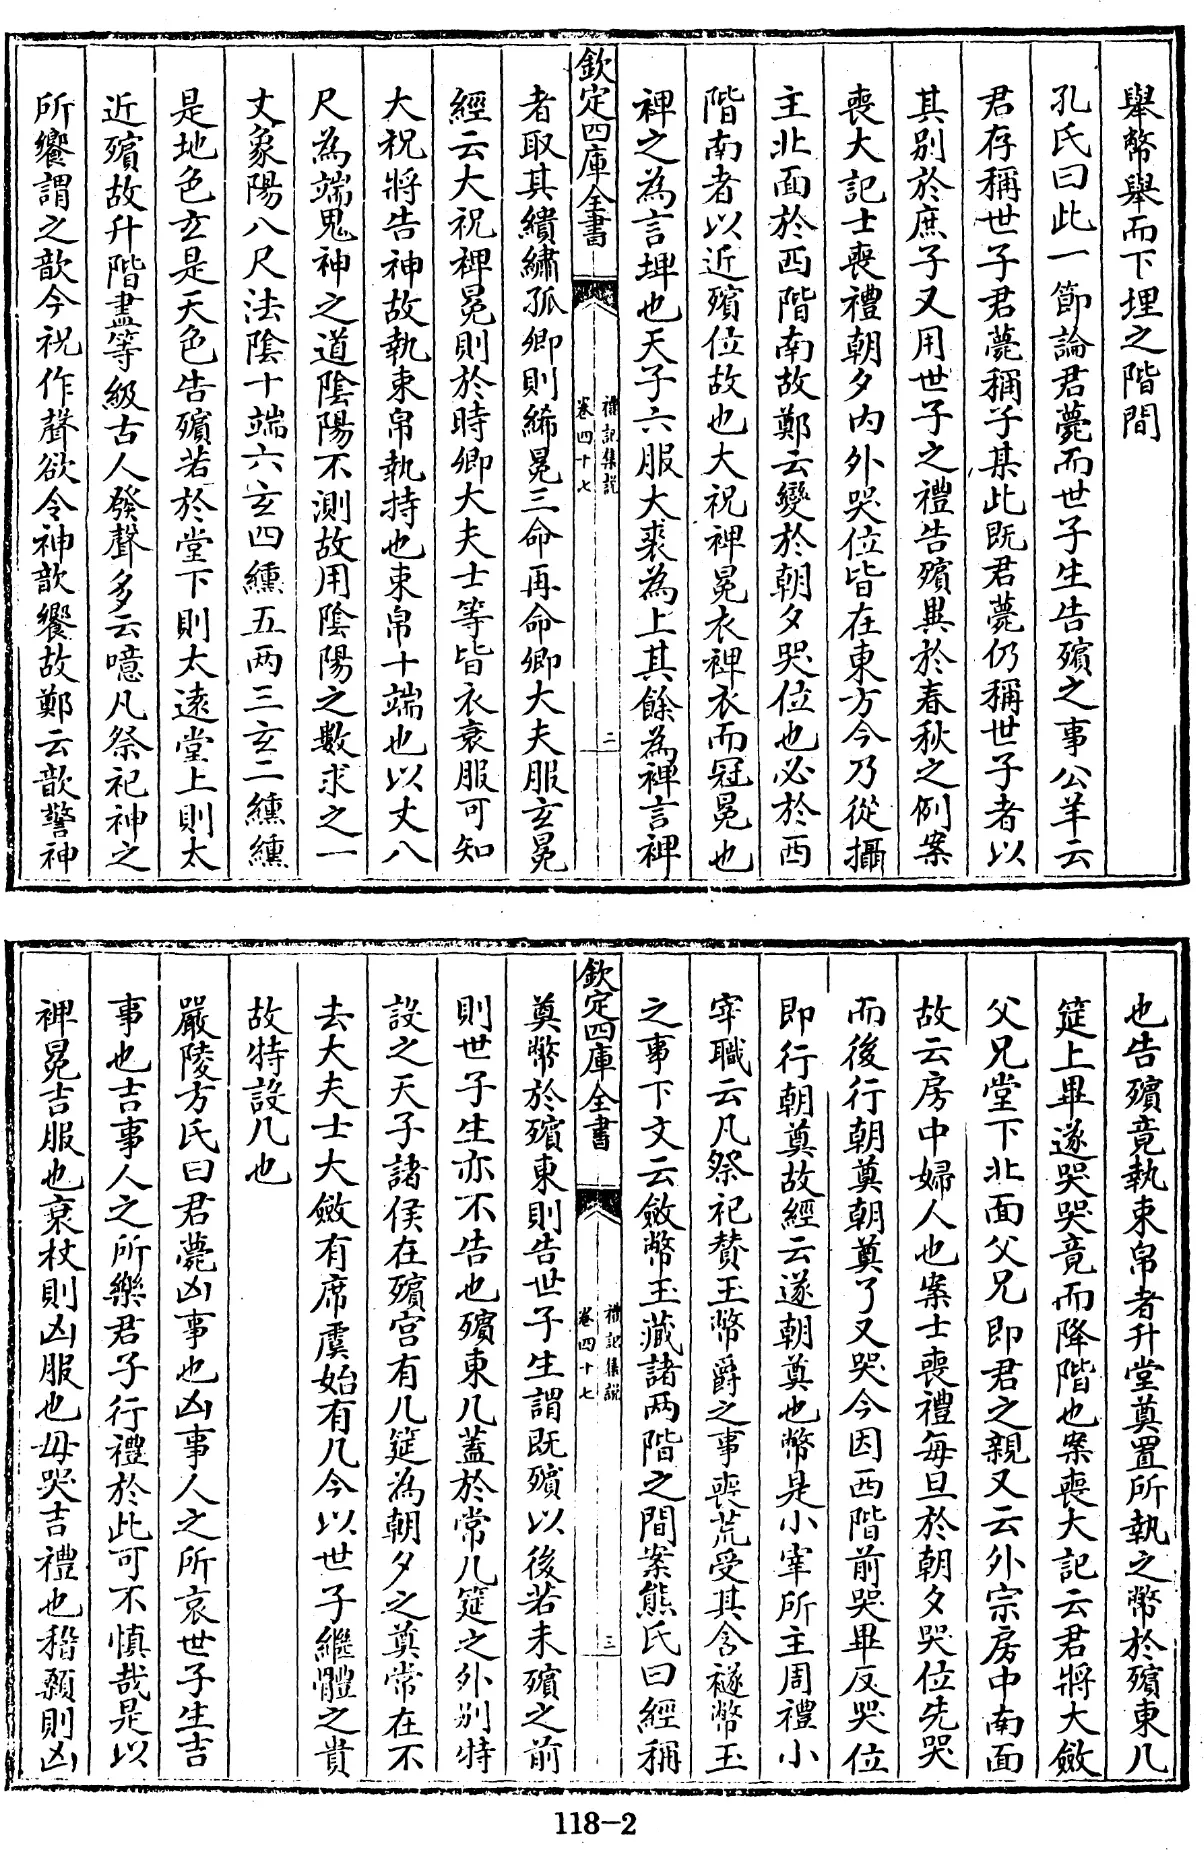 舉幣舉而下埋之階間
孔氏曰此一節論君薨而世子生告殯之事公羊云
君存稱世子君薨稱子某此既君薨仍稱世子者以
其別於庶子又用世子之禮告殯異於春秋之例案
喪大記士喪禮朝夕內外哭位皆在東方今乃從攝
主北面於西階南故鄭云變於朝夕哭位也必於西
階南者以近殯位故也大祝裨冕衣裨衣而冠冕也
裨之為言埤也天子六服大裘為上其餘為裨言裨
欽定四庫全書
禮記集說
卷四十七
二
者取其繢繡孤卿則絺冕三命再命卿大夫服玄冕
經云大祝裨冕則於時卿大夫士等皆衣衰服可知
大祝將告神故執束帛執持也束帛十端也以丈八
尺為端鬼神之道陰陽不測故用陰陽之數求之一
丈象陽八尺法陰十端六玄四纁五兩三玄二纁纁
是地色玄是天色告殯若於堂下則太遠堂上則太
近殯故升階盡等級古人發聲多云噫凡祭祀神之
所饗謂之歆今祝作聲欲令神歆饗故鄭云歆警神
也告殯竟執束帛者升堂奠置所執之幣於殯東几
筵上畢遂哭哭竟而降階也案喪大記云君將大斂
父兄堂下北面父兄即君之親又云外宗房中南面
故云房中婦人也案士喪禮每旦於朝夕哭位先哭
而後行朝奠朝奠了又哭今因西階前哭畢反哭位
即行朝奠故經云遂朝奠也幣是小宰所主周禮小
宰職云凡祭祀贊王幣爵之事喪荒受其含襚幣玉
之事下文云斂幣玉藏諸兩階之間案熊氏曰經稱
欽定四庫全書
禮記集說
卷四十七
三
奠幣於殯東則告世子生謂既殯以後若未殯之前
則世子生亦不告也殯東几蓋於常几筵之外別特
設之天子諸侯在殯宮有几筵為朝夕之奠常在不
去大夫士大斂有席虞始有几今以世子繼體之貴
故特設几也
嚴陵方氏曰君薨凶事也凶事人之所哀世子生吉
事也吉事人之所樂君子行禮於此可不慎哉是以
裨冕吉服也衰杖則凶服也毋哭吉禮也稽顙則凶
118-2